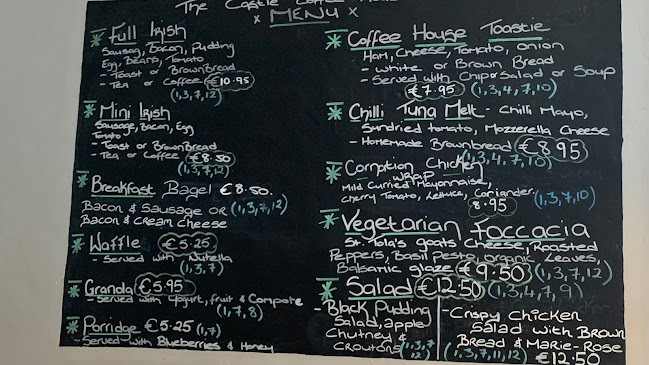 The Castle Coffee
x MENU x
* Full Irish
Sausag, Bacon, Pudding
Egg, Beans, Tomato
- Toast or Brown Bread
- Tea or Coffee €10.95
(1,3,7,12)
* Mini Irish
Sausage, Bacon, Egg
Tomato
- Toast or Brown Bread
- Tea or Coffee €8.50
(1,3,7,12)
* Breakfast Bagel €8.50.
Bacon & Sausage or (1,3,7,12)
Bacon & Cream Cheese
* Waffle €5.25
- Served with Nutella
(1,3,7)
* Granola €5.95
- Served with Yogurt, fruit & Compote
(1,7,8)
* Porridge €5.25 (1,7)
- Served with Blueberries & Honey
* Coffee House Toastie
Ham, Cheese, Tomato, onion
- White or Brown Bread
- Served with Chips or Salad or Soup
€7.95 (1,3,4,7,10)
* Chilli Tuna Melt - Chilli Mayo,
Sundried tomato, Mozzerella Cheese
- Homemade Brownbread €8.95
(1,3,4,7,10)
* Cornation Chicken
wrap
Mild Curried Mayonnaise,
Cherry Tomato, Lettuce, Coriander (1,3,7,10)
8.95
* Vegetarian Foccacia
St. Tola's goats Cheese, Roasted
Peppers, Basil Pesto, organic Leaves,
Balsamic glaze €9.50 (1,3,7,12)
* Salad €12.50 (1,3,4,7,9)
- Black Pudding
Salad, apple
Chutney &
Croutons (1,3,7
12)
- Crispy Chicken
Salad with Brown
Bread & Marie-Rose
(1,3,7,11,12) €12.50